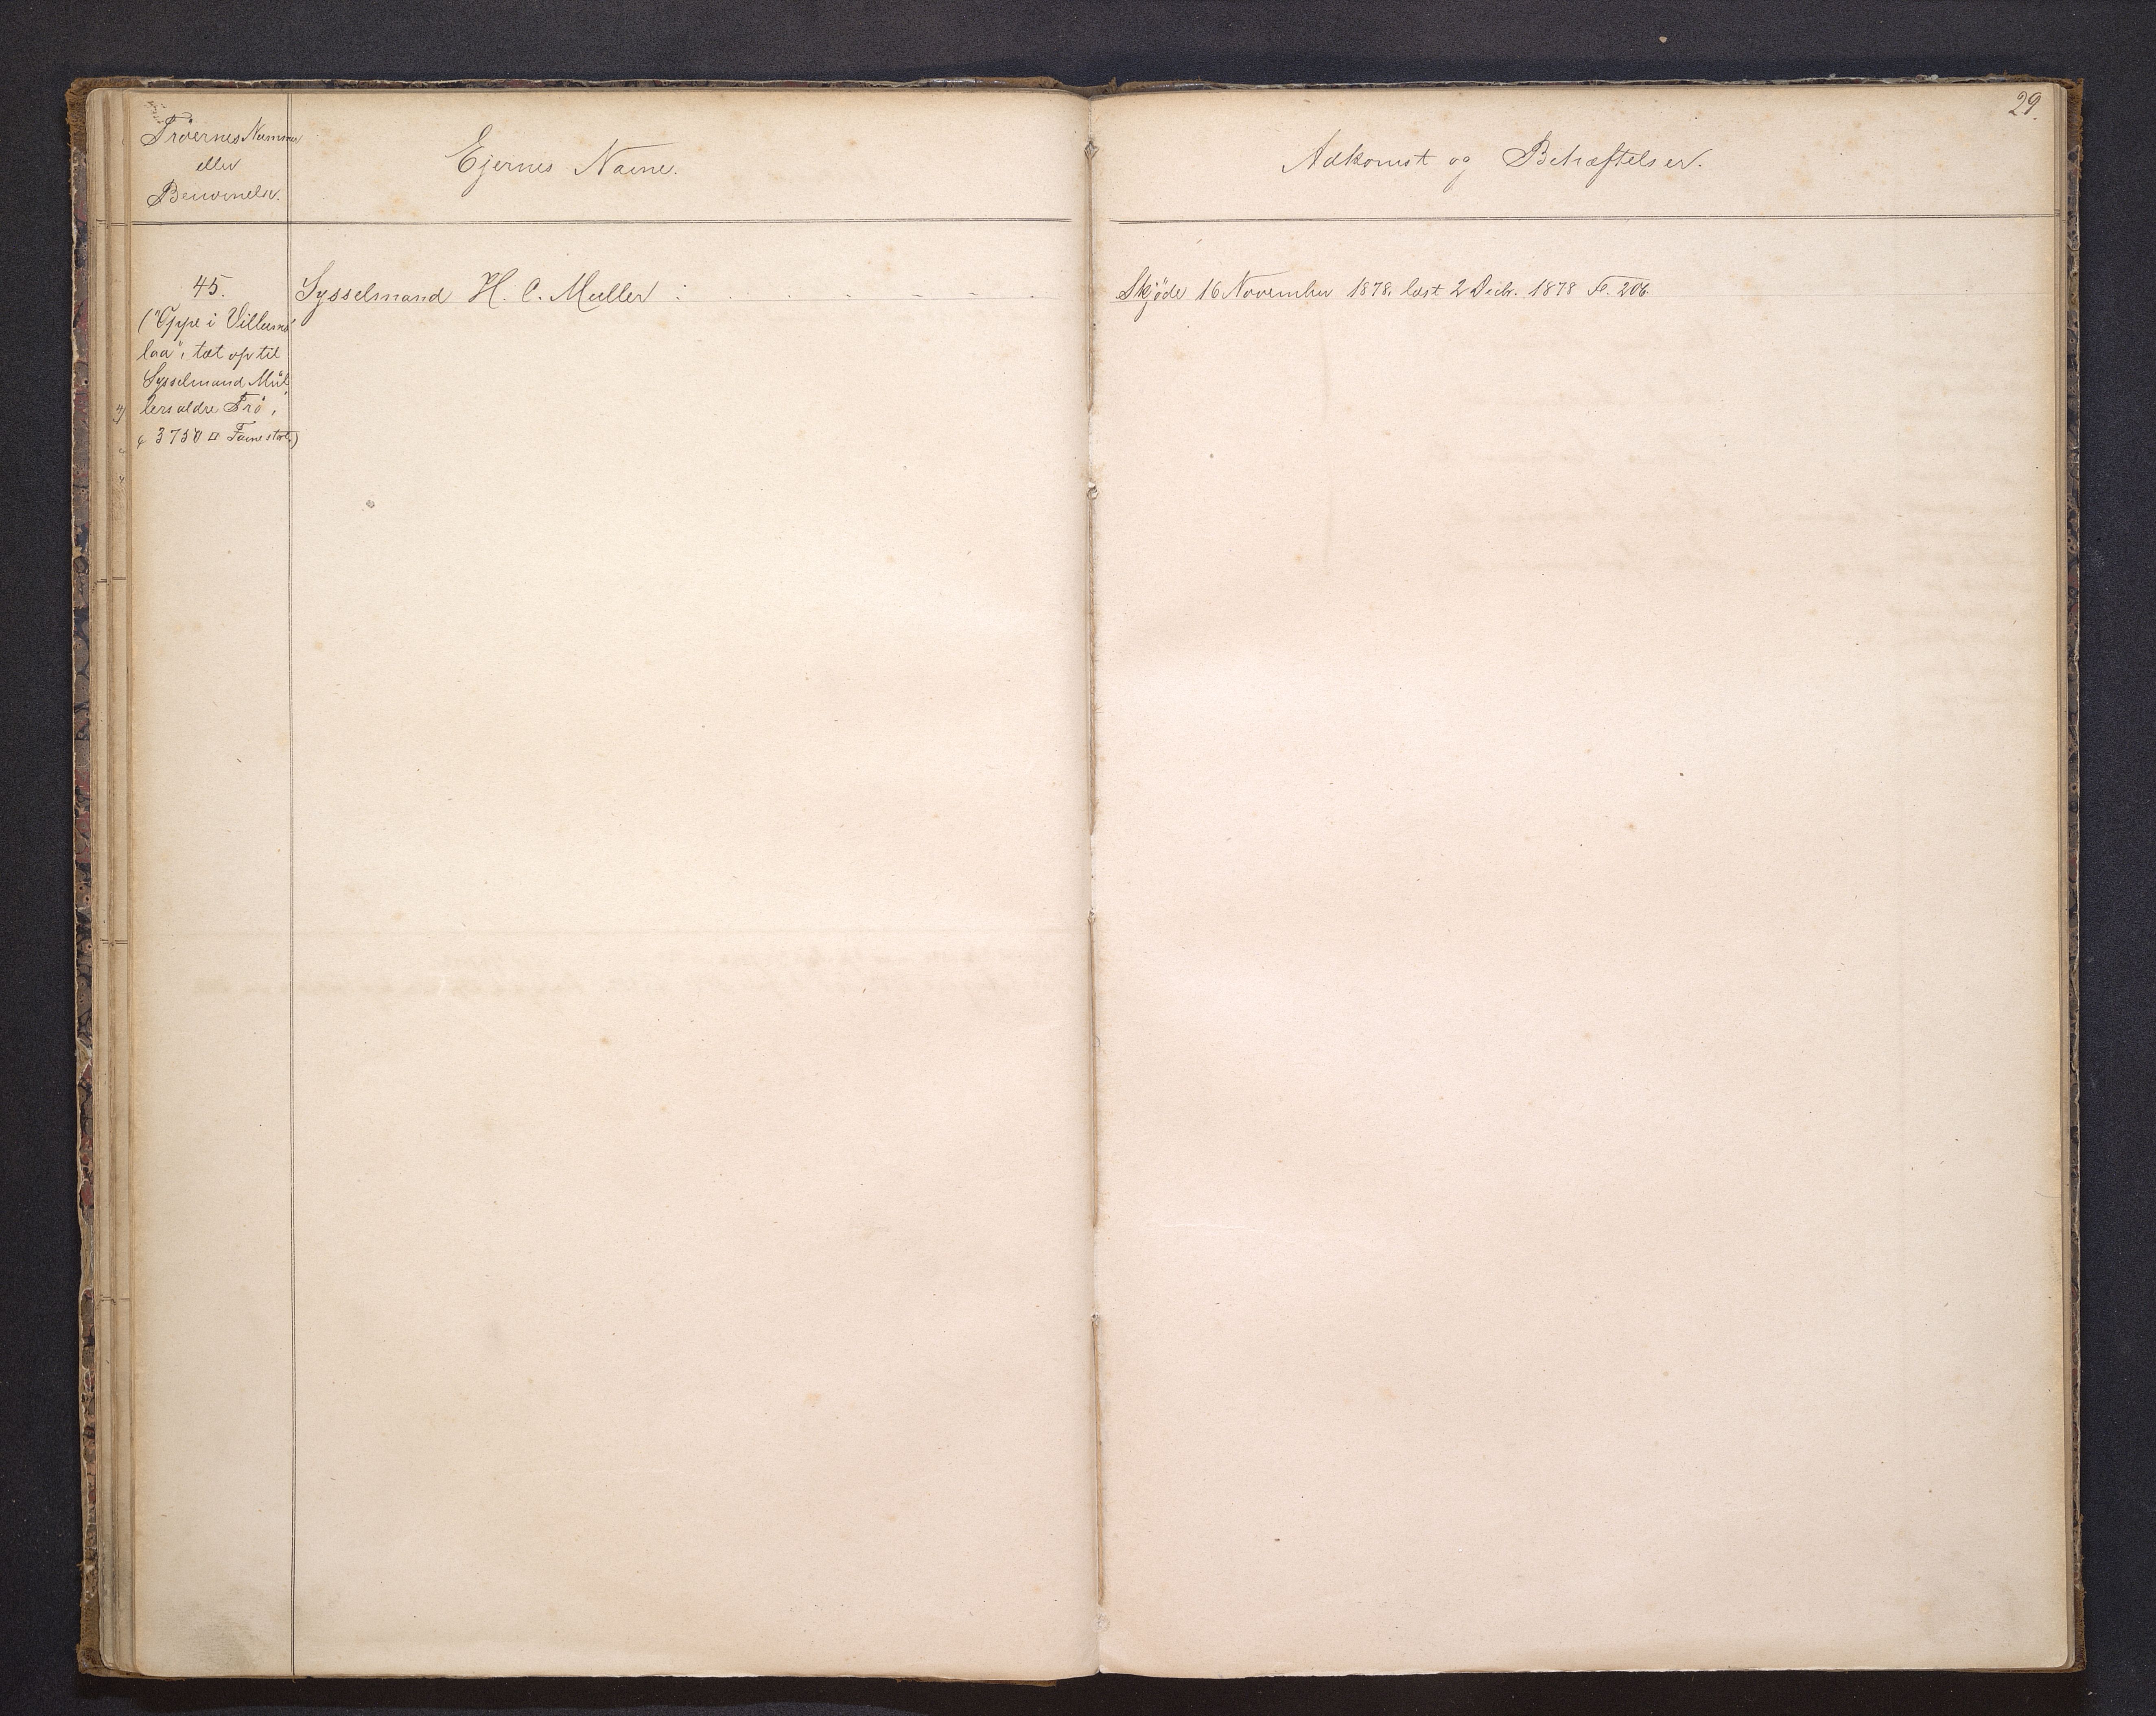 29.
Tröernes Nummer
eller
Benævnelse.
Ejernes Navne.
Adkomst og Behæftelser.
45.
("Oppe i Villums
laa", tæt op til
Sysselmand Mül
lers ældre Trö,
3750 □ Favne stor.)
Sysselmand H. C. Müller
Skjöde 16 November 1878, læst 2 Decbr. 1878 Fo. 206.